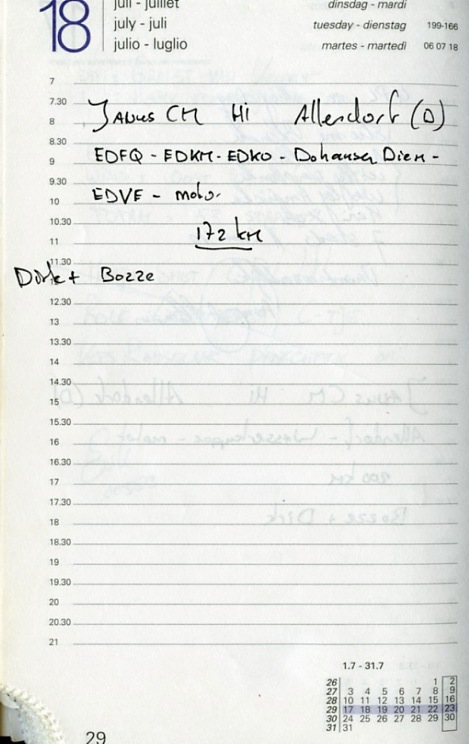 18
juli - juillet
july - juli
julio - luglio
dinsdag - mardi
tuesday - dienstag 199-166
martes - martedì 06 07 18
7
7.30
8 JANUS CM Hi Allendorf (D)
8.30
9 EDFQ - EDKM - EDKO - Diem -
9.30
10 EDVE - motor
10.30
11 172 km
11.30
Dirk + Bozze
12.30
13
13.30
14
14.30
15
15.30
16
16.30
17
17.30
18
18.30
19
19.30
20
20.30
21
1.7 - 31.7
26 1 2
27 3 4 5 6 7 8 9
28 10 11 12 13 14 15 16
29 17 18 19 20 21 22 23
30 24 25 26 27 28 29 30
31 31
29